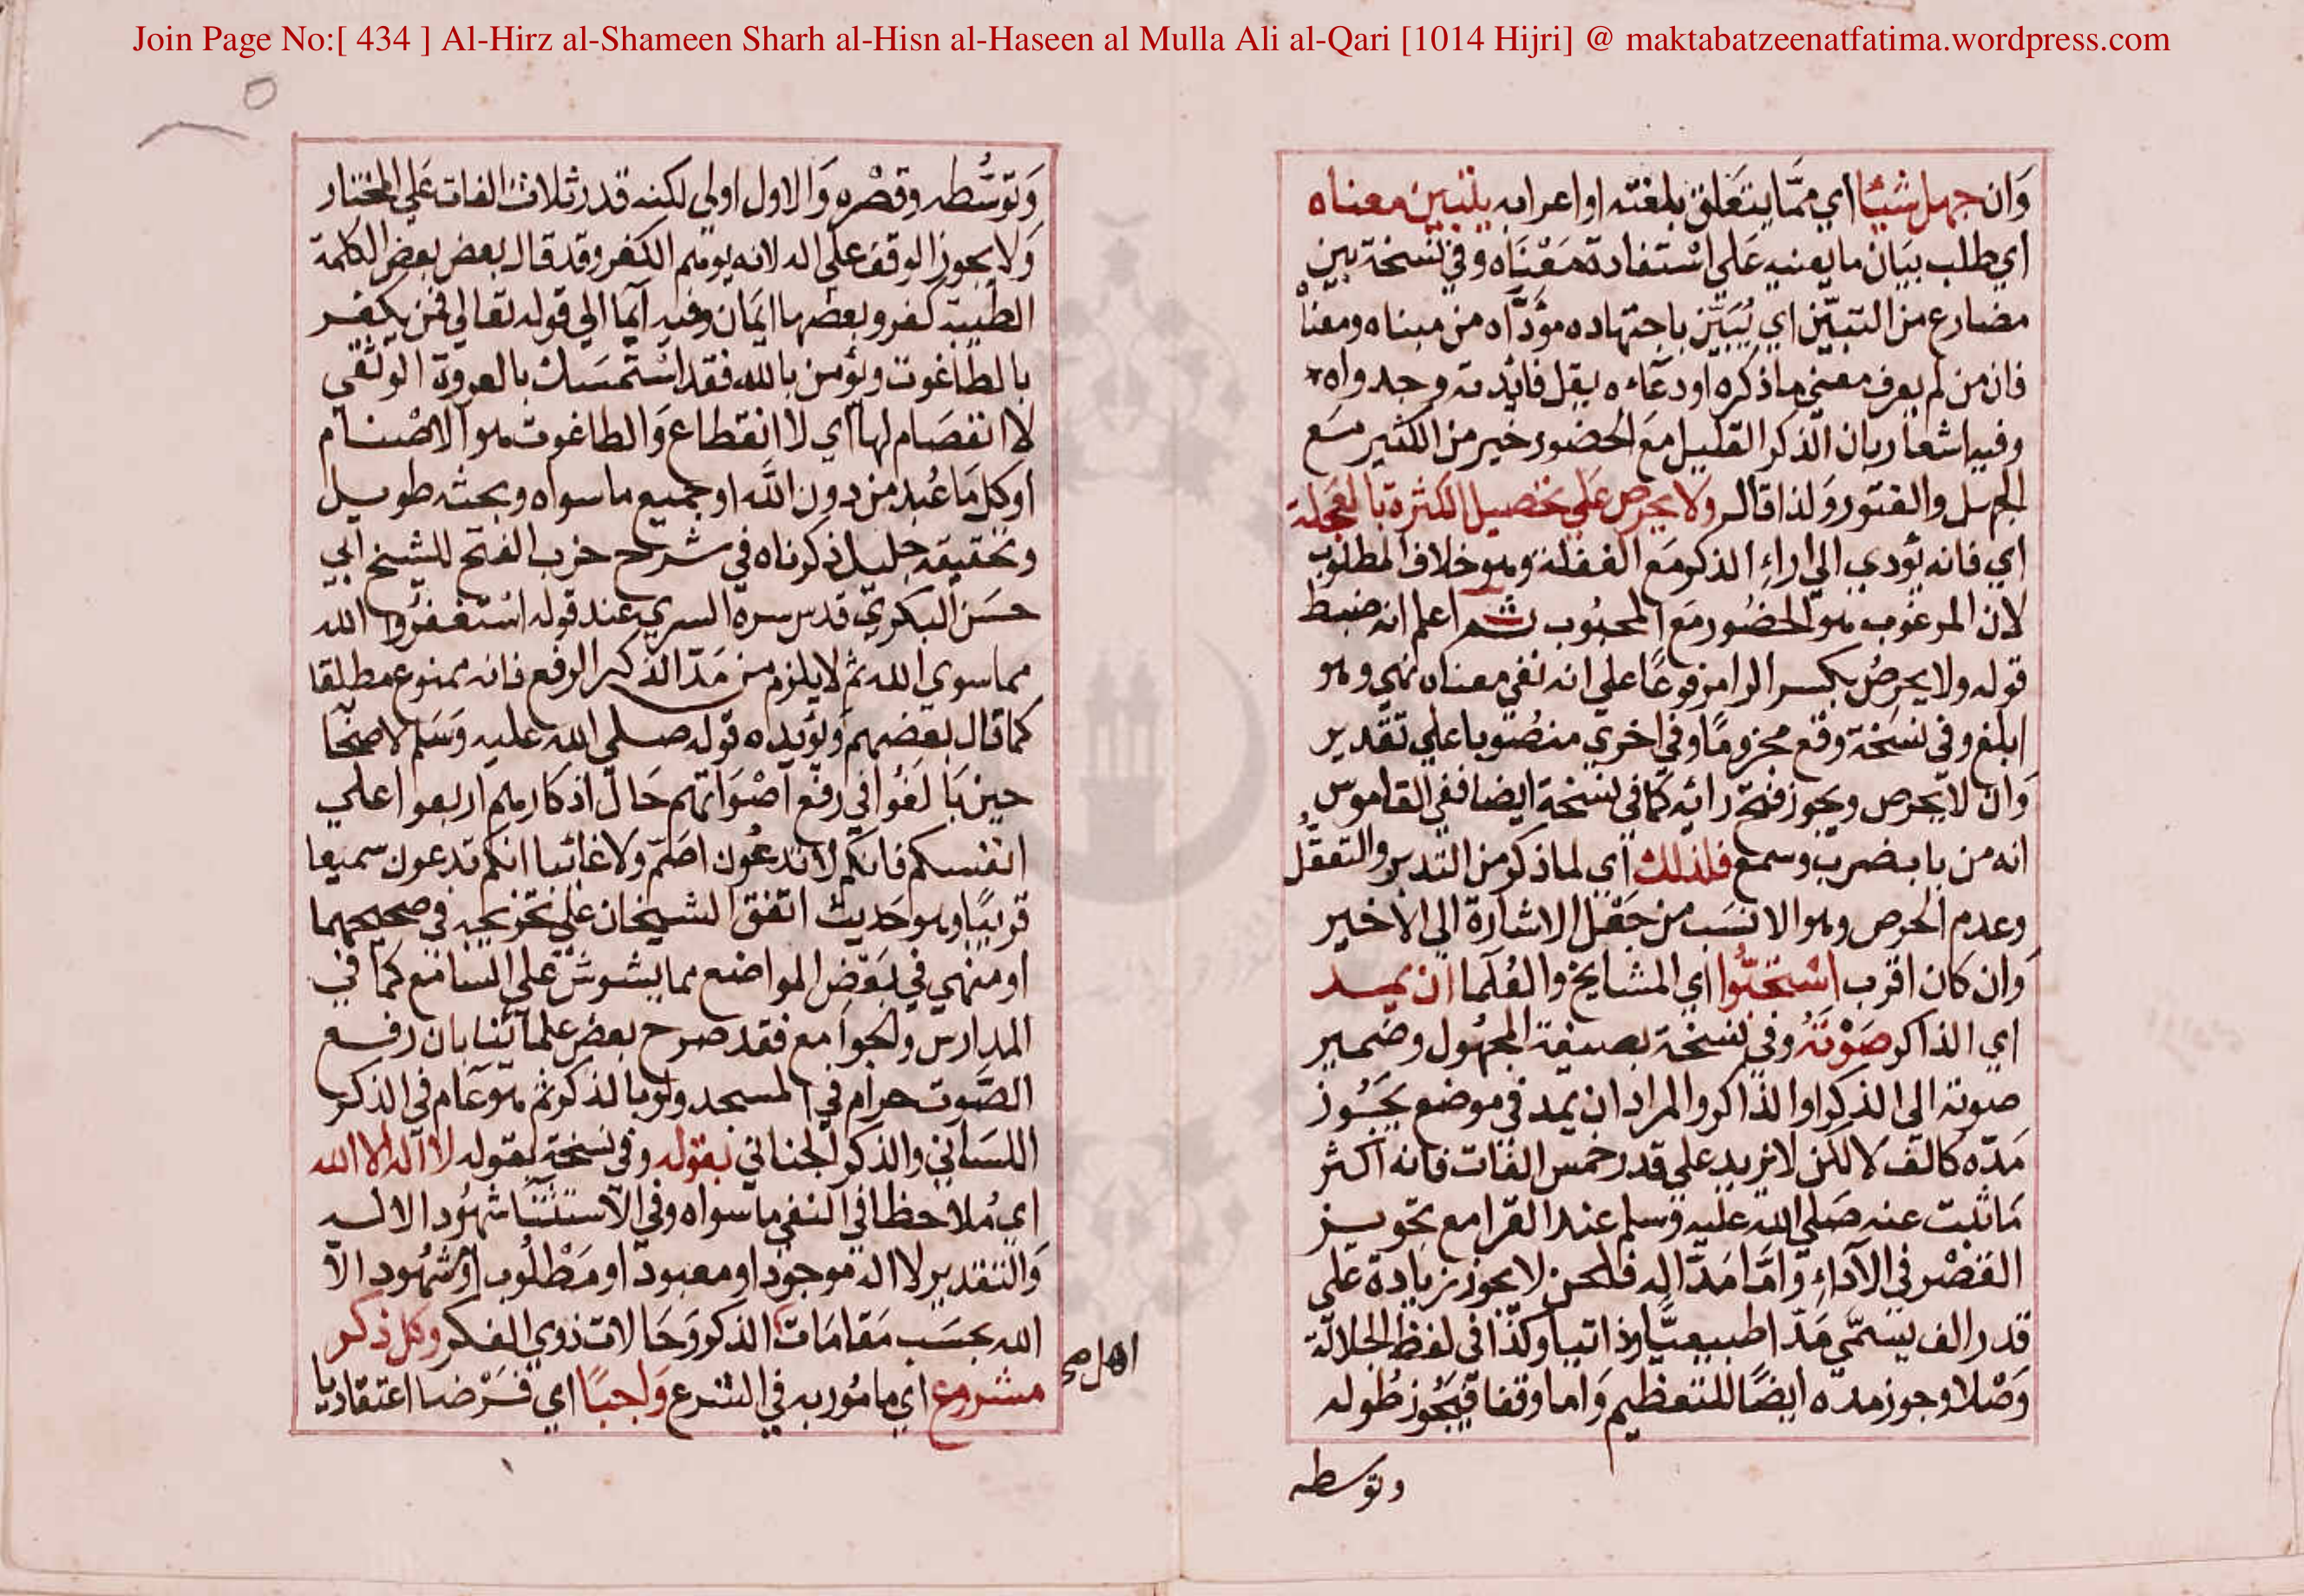 Join Page No:[ 434 ] Al-Hirz al-Shameen Sharh al-Hisn al-Haseen al Mulla Ali al-Qari [1014 Hijri] @ maktabatzeenatfatima.wordpress.com
وَان جهل شيئا اي ممَّا يتعَلق بلغته او اعرابه يتبين معناه
اي طلب بيَان ما يعنيه عَلي اسْتفادة مَعْنَاه وفي نسْخة يبين
مضارع من التبيّن اي يُبَيّن باجتهاده مؤدَّاه من مبناه ومعناه
فان من لم يعرف معني ما ذكره او دعَاءه يقل فائدته وجدواه
وفيه اشعار بان الذكر القليل مَع الحضور خير من الكثير مَع
الجهل والفتور وَلذا قال ولا يحرص عَلي تحصيل الكثرة بالعَجلة
اي فانه يؤدي الي اراءِ الذكر مَع الغفلة وهو خلاف المطلوب
لان المرغوب هو الحضُور مَع المحبُوب ثم اعلم انه ضبط
قوله ولا يحرصُ بكسر الرا مرفوعًا علي انه نفي معناه نهي وهو
ابلغ وفي نسَخة وقع مجزومًا وفي اخري منصُوبا علي تقدير
وَان لا يحرص ويجوز فتح رائه كما في نسخة ايضا ففي القاموس
انه من باب ضرب وسمع فلذلك اي لما ذكر من التدبر والتعقّل
وعدم الحرص وهو الانسَب من جَعْل الاشارة الي الاخير
وَان كان اقرب استحبّوا اي المشايخ والعُلمَا ان يمد
اي الذاكر صَوْتَهُ وفي نسْخة بصيغة المجهُول وضمير
صوته الي الذكر او الذاكر والمراد ان يمد في موضع يَجُوز
مَدّه كالف لا لكن لا يزيد علي قدر خمس الفات فانه اكثر
مَا ثبت عنه صَلي الله عليه وَسلم عند القرا مع تجويز
القَصْر في الآداءِ وَامَّا مَدّ اله فلحن لا يجوز زيادة علي
قدر الف يسَمّي مَدّا طبيعيًّا وذاتيا وكذا في لفظ الجلالة
وَصْلا وجوز مده ايضًا للتعظيم وَاما وقفا فيَجُوز طُوله
وتوسطه
وَتوسُّطه وقصْره وَالاول اولي لكنه قدر ثلاث الفات عَلي المختار
وَلا يجوز الوقف علي اله لانه يوهم الكفر وقد قال بعض بعض الكلمة
الطيبة كفر وبعضها ايمَان وفيه ايمَا الي قوله تعالي فمن يكفر
بالطاغوت ويؤمن بالله فقد اسْتمسَك بالعروة الوثقي
لا انفصَام لها اي لا انقطاع وَالطاغوت هو الاصْنام
اوكل مَا عُبد من دون الله او جميع ما سواه وبحثه طويل
وتحقيقه جليل ذكرناه في شرح حزب الفتح للشيخ ابي
حسَن البكريّ قدس سره السري عند قوله اسْتغفرُوا الله
مما سوي الله ثم لا يلزم من مَدّ الذكر الرفع فانه ممنوع مطلقا
كما قال بعضهم وَيؤيده قوله صلي الله عليه وَسَلم لاصحَابه
حين بَالغُوا في رفع اصْوَاتهم حَال اذكارهم اربعوا علي
انفسكم فانكم لا تدعُون اصَمّ ولا غائبا انكم تدعون سميعا
قريبًا وهو حَديث اتفق الشيخان علي تخريجه في صحيحهما
او منهي في بَعْض المواضع مما يشوش علي السامع كما في
المدارس والجوامع فقد صرح بعض علمآئنا بان رفع
الصَّوت حرام في المسجد ولو بالذكر ثم هو عَام في الذكر
اللسَاني والذكر الجناني بقوله وفي نسخة لقوله لا اله الا الله
اي مُلاحظا في النفي ما سواه وفي الاستثنَا شهُود الاله
وَالتقدير لا اله موجود او معبود او مَطْلُوب او مَشهُود الا
الله بحسَب مَقامَات الذكر وَحَالات ذوي الفكر وكل ذكر
اهل صح
مشروع اي مامُور به في الشرع وَاجبًا اي فَرْضا اعتقاديا